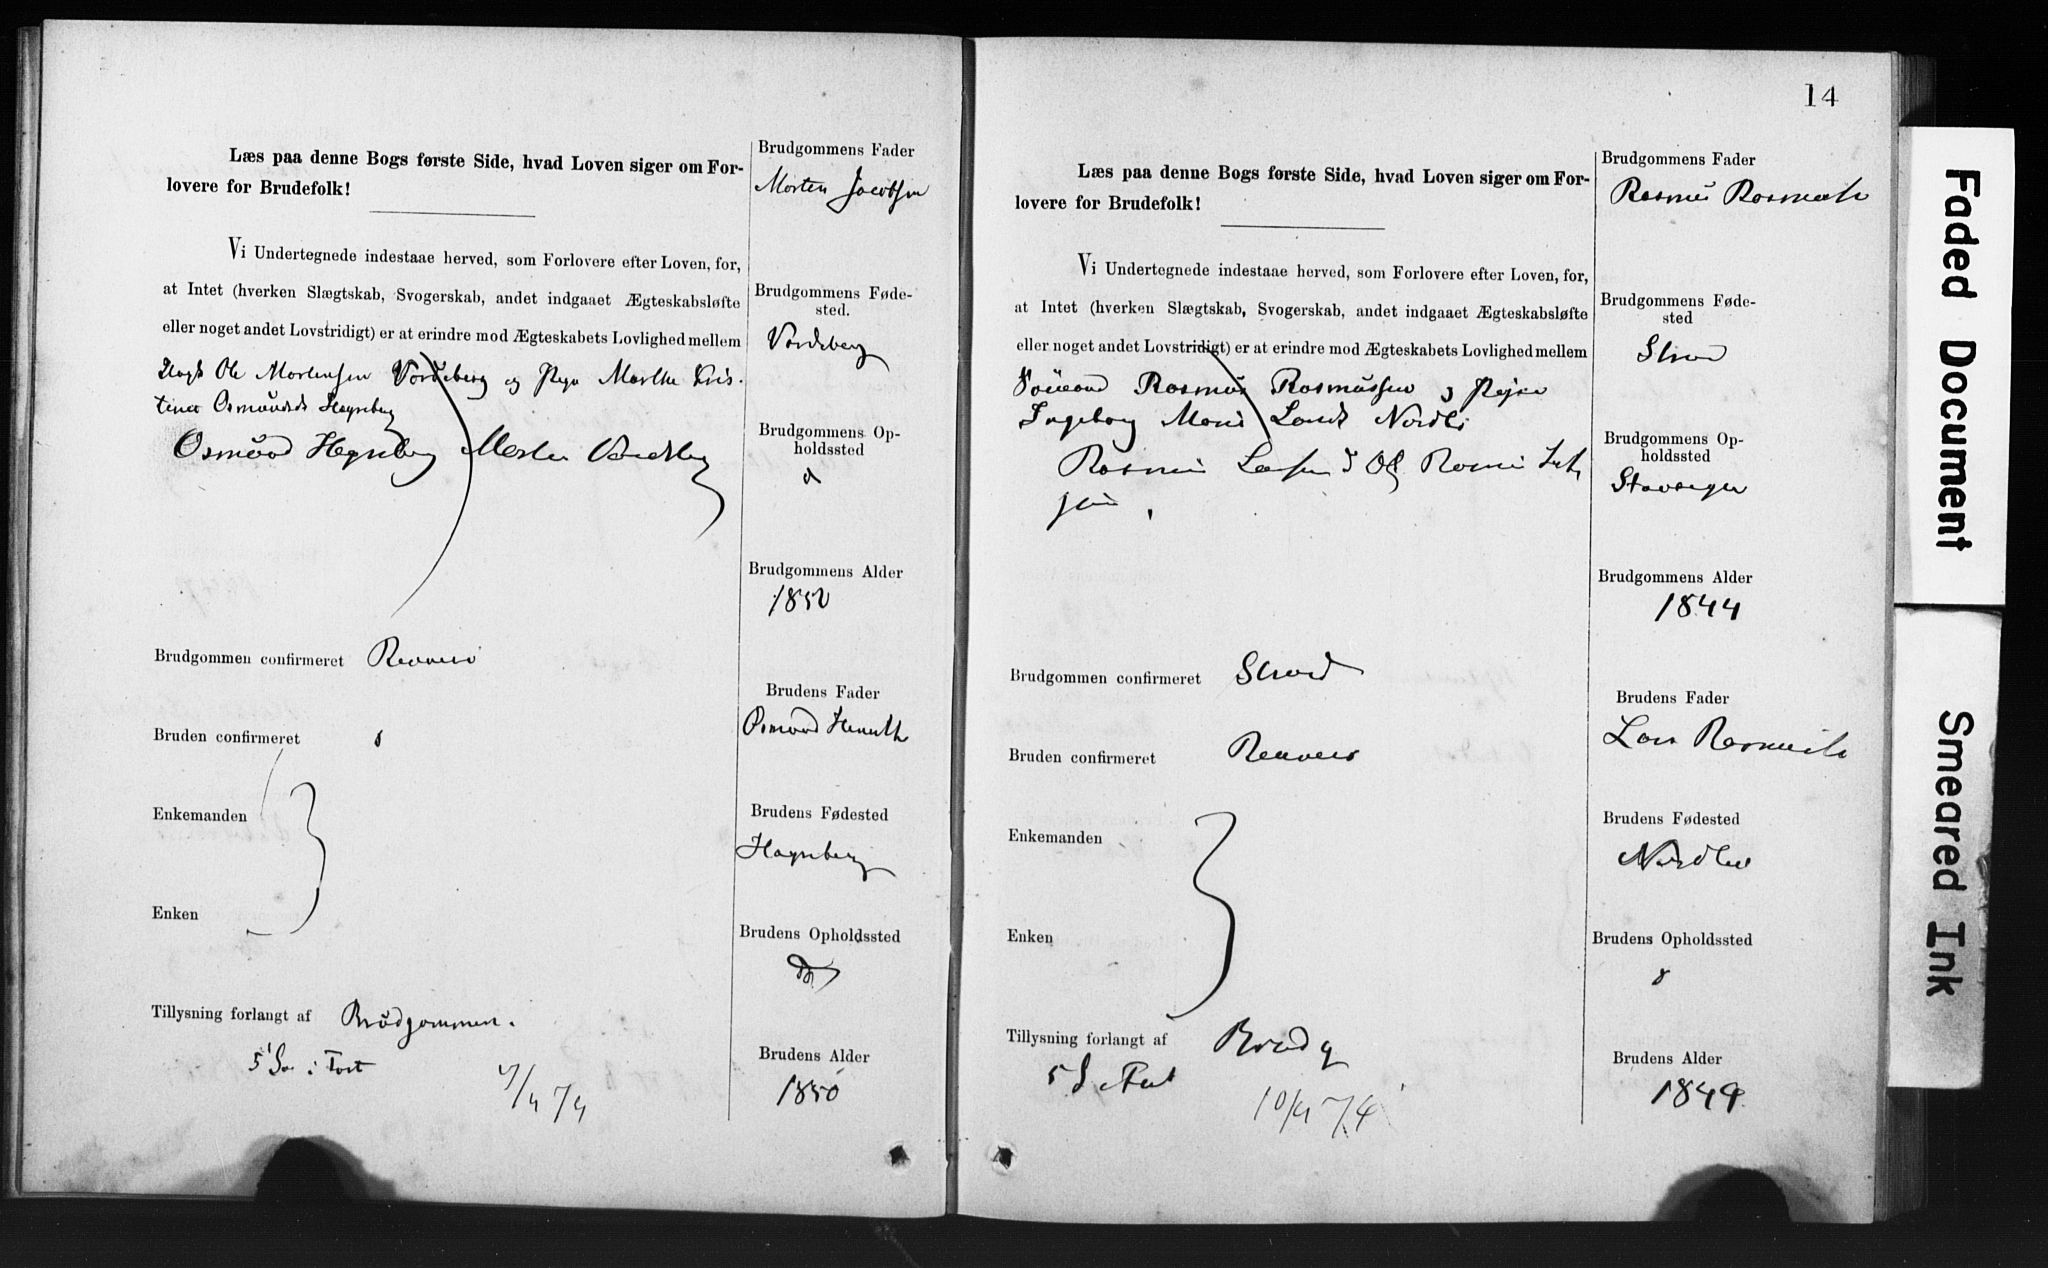 Læs paa denne Bogs første Side, hvad Loven siger om For-
lovere for Brudefolk!
Vi Undertegnede indestaae herved, som Forlovere efter Loven, for,
at Intet (hverken Slægtskab, Svogerskab, andet indgaaet Ægteskabsløfte
eller noget andet Lovstridigt) er at erindre mod Ægteskabets Lovlighed mellem
Ole Mortensen Vordeberg og Pige Marthe Kris-
tine Osmundsd Hegreberg
Osmund Hegreberg
Brudgommen confirmeret Rennesø
Bruden confirmeret d
Enkemanden
Enken
Tillysning forlangt af Brudgommen.
5 S i Fast
Brudgommens Fader
Morten Jacobsen
Brudgommens Føde-
sted.
Vordeberg
Brudgommens Op-
holdssted
d
Brudgommens Alder
1850
Brudens Fader
Osmund
Brudens Fødested
Brudens Opholdssted
Brudens Alder
1850
14
Læs paa denne Bogs første Side, hvad Loven siger om For-
lovere for Brudefolk!
Vi Undertegnede indestaae herved, som Forlovere efter Loven, for,
at Intet (hverken Slægtskab, Svogerskab, andet indgaaet Ægteskabsløfte
eller noget andet Lovstridigt) er at erindre mod Ægteskabets Lovlighed mellem
Rasmus Rasmussen og Pige
Ingeborg Marie Larsd Nordbø
Brudgommen confirmeret Strand
Bruden confirmeret Rennesø
Enkemanden
Enken
Tillysning forlangt af Brudg
5 S i Fast
10/4 74
Brudgommens Fader
Rasmus
Brudgommens Føde-
sted
Strand
Brudgommens Op-
holdssted
Stavanger
Brudgommens Alder
1844
Brudens Fader
Lars
Brudens Fødested
Nordbø
Brudens Opholdssted
d
Brudens Alder
1849
Faded Document
Smeared Ink